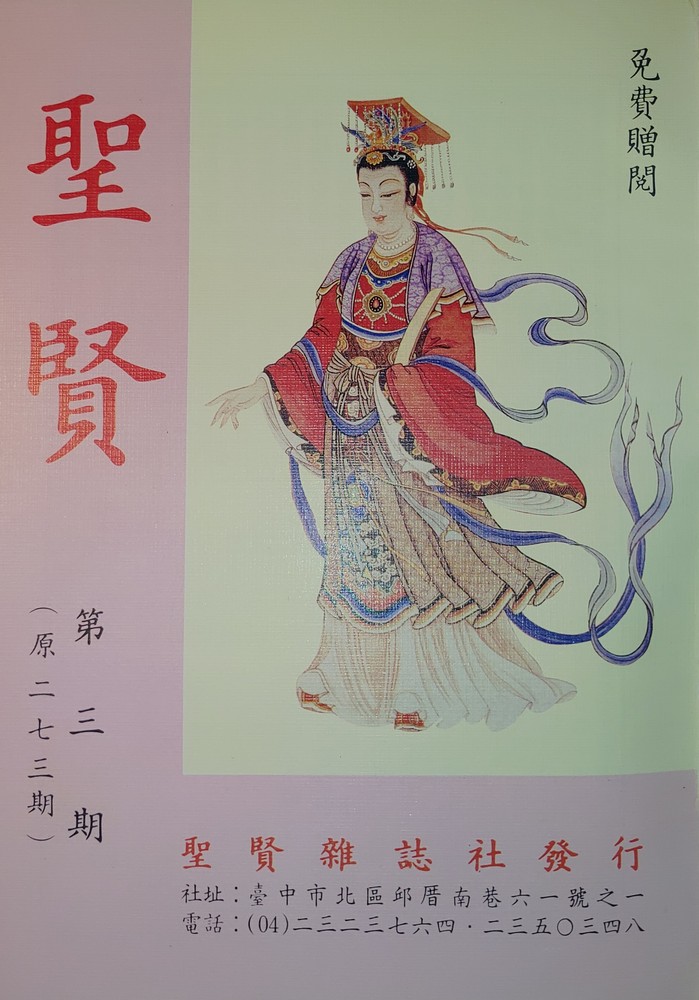 免費贈閱
聖賢
第三期
（原二七三期）
聖賢雜誌社發行
社址：臺中市北區邱厝南巷六一號之一
電話：(04)二三二三七六四．二三五〇三四八